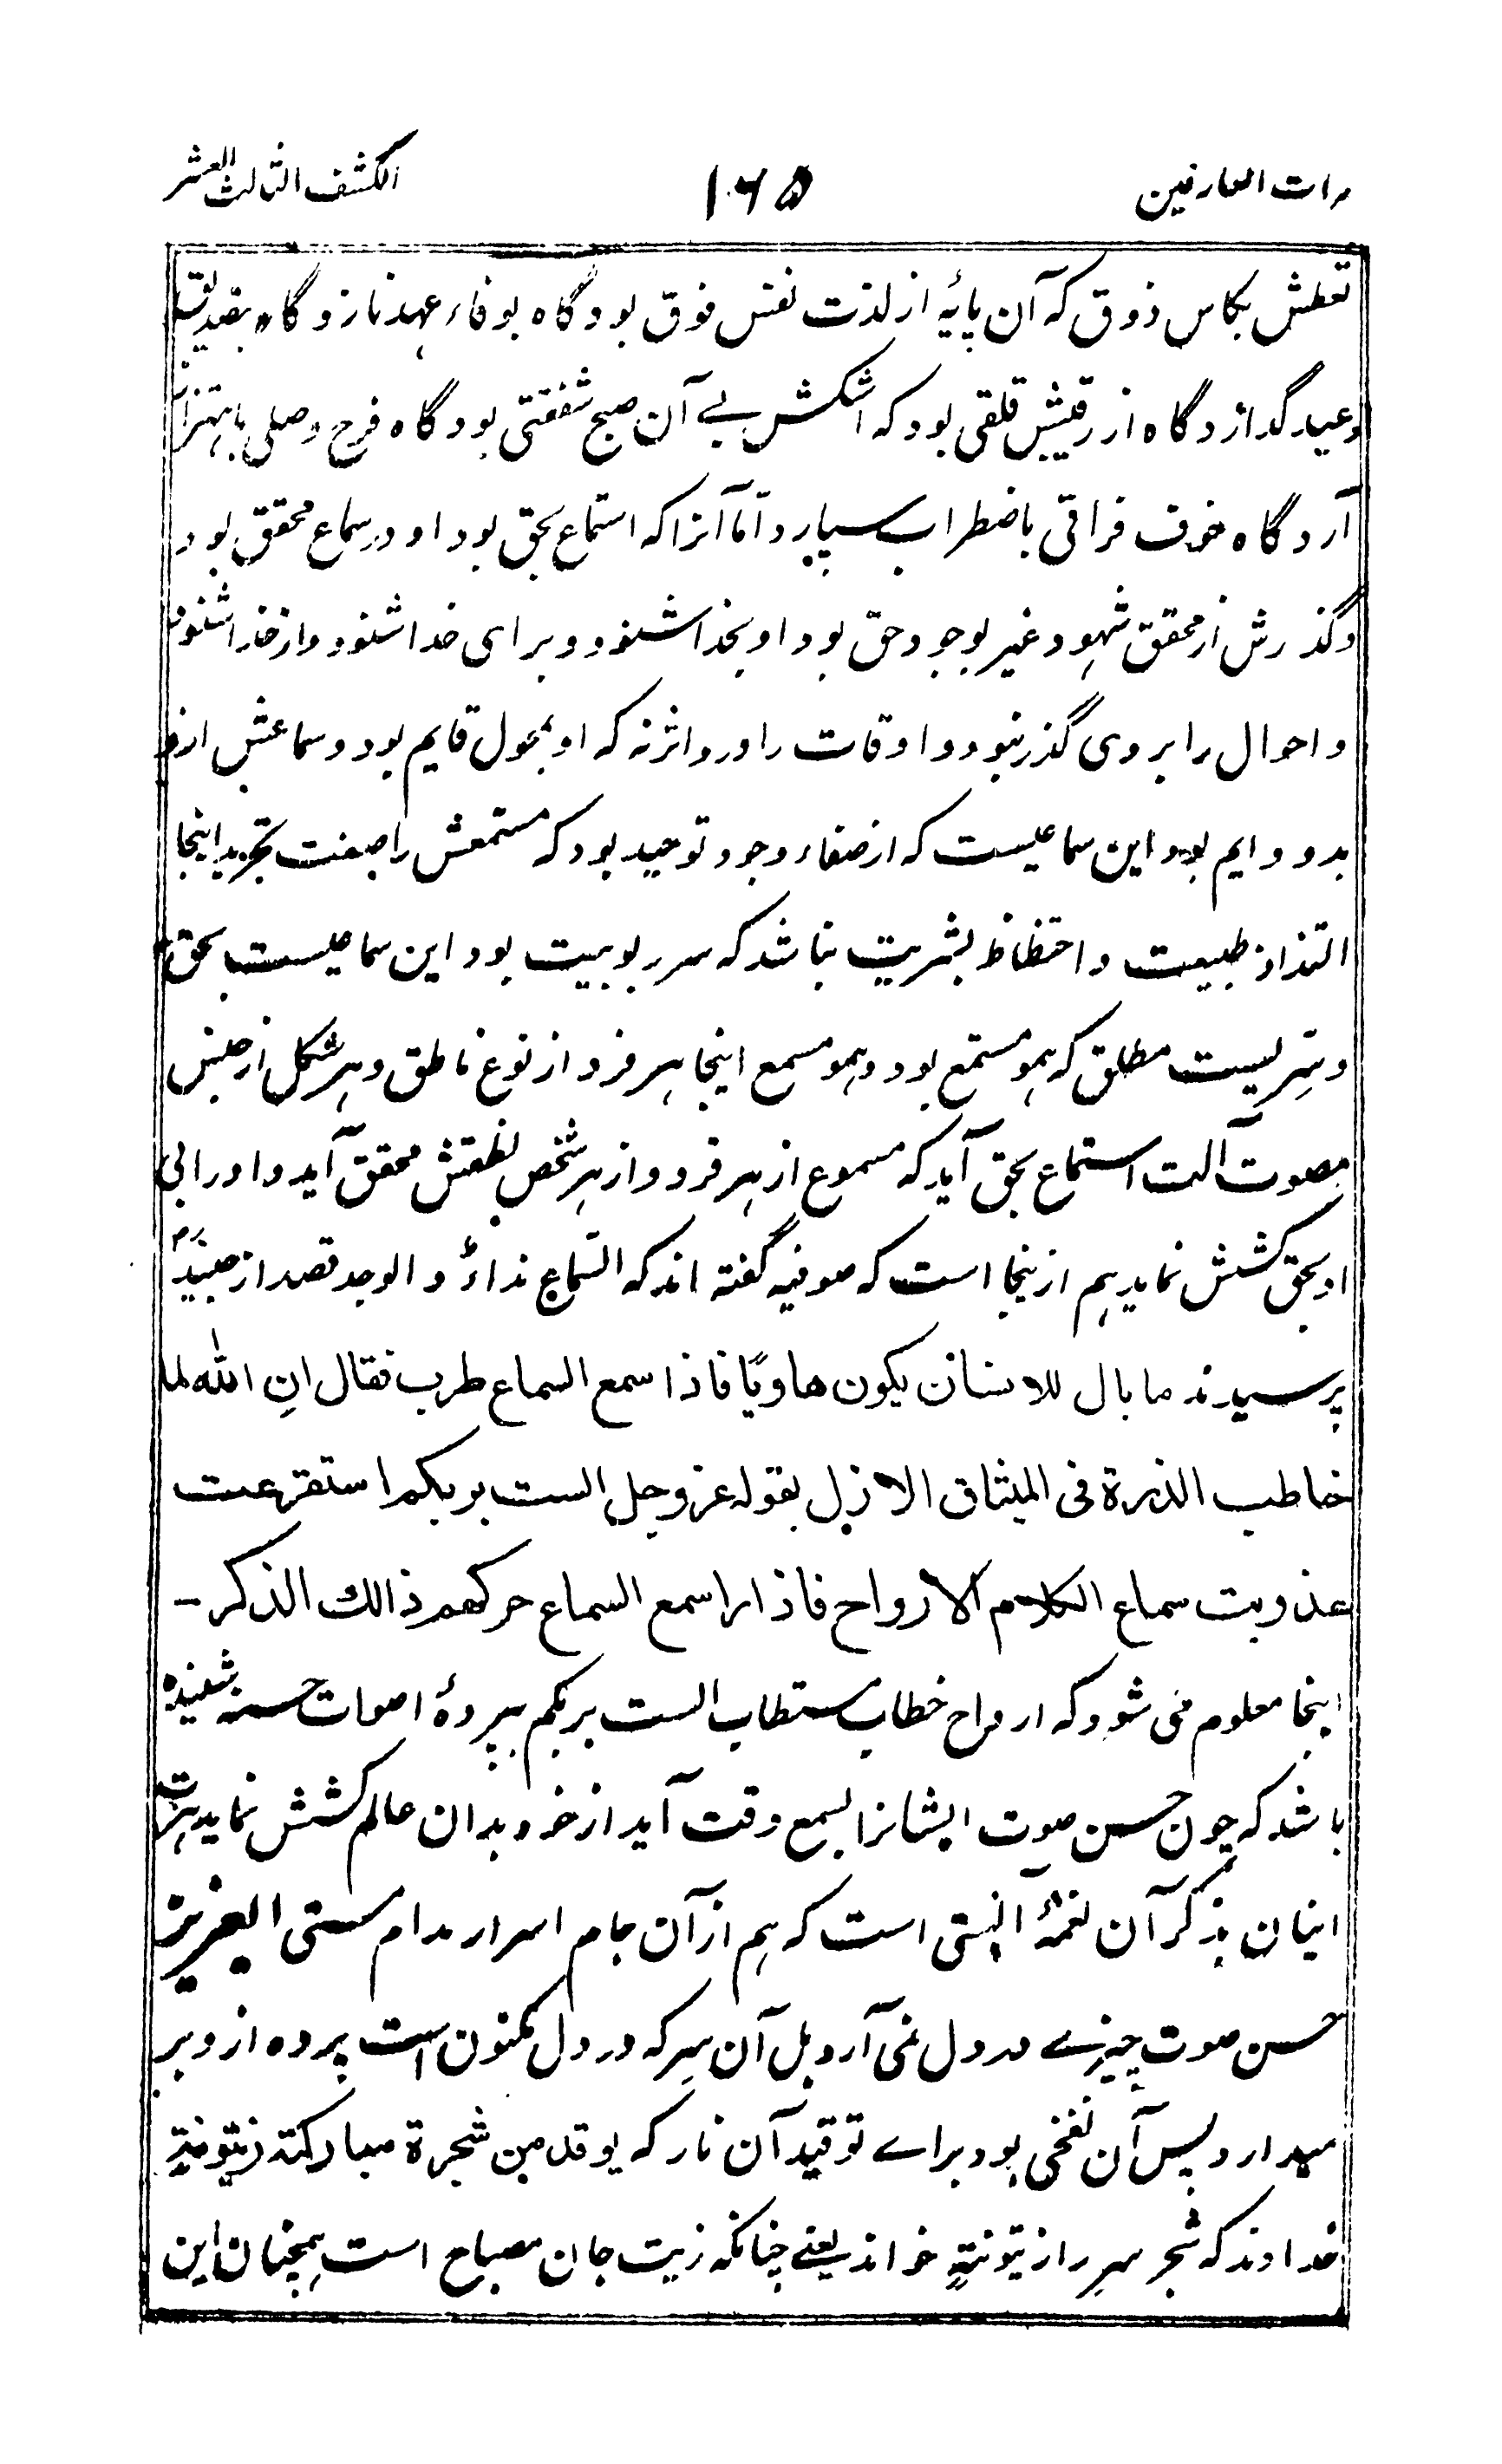 مرات العارفین ۱۶۵ الکشف الثالث العشر
تعطش بکاس ذوق که آن پایٔه از لذت نفس فوق بود گاه بوفاء عهد نازد و گاه بصدیق
وعید گدازد گاه از رقیبش قلقی بود که اشکش بے آن صبح شفقتی بود گاه فرح وصلی باهتزاز
آرد گاه خوف فراقی باضطراب سپارد و اما آنرا که استماع بحق بود او در سماع محقق بود
و گذرش از محقق شهود غیر بوجود حق بود او بخدا شنود و برای خدا شنود و از خدا شنود
و احوال را بر وی گذر نبود و اوقات را ورو اثر نه که او بمحول قایم بود و سماعش ازو
بدو دایم بود این سماعیست که از صفاء وجود توحید بود که مستمعش را صفت تجرید اینجا
التذاذ طبیعت و احتظاظ بشریت نباشد که سر ربوبیت بود این سماعیست بحق
و سِریست مطلق که همو مستمع بود و همو مسمع اینجا هر فرد از نوع ناطق و هر شکل از جنس
مصوت آلت استماع بحق آید که مسموع از هر فرد و از هر شخص نطقش محقق آید و او را بی
او بحق کشش نماید هم ازینجا است که صوفیه گفته اند که السَّماع نداءٌ و الوجد قصد از جنید رح
پرسیدند ما بال للانسان یکون هاویًا فاذا سمع السماع طرب فقال ان الله لما
خاطب الذرة فی المیثاق الازل بقوله عز وجل الست بربکم استفرعت
عذوبت سماع الکلام الارواح فاذا را سمع السماع حرکهم ذالك الذکر -
اینجا معلوم می شود که ارواح خطاب مستطاب الست بربکم بپردهٔ اصوات حسنه شنیده
باشد که چون حسن صوت ایشانرا بسمع وقت آید از خود بدان عالم کشش نماید
اینان بذکر آن نغمهٔ الستی است که هم از آن جام اسرار مدام مستی العزیز
حسن صوت چیزے در دل نمی آرد بل آن سِر که در دل مکنون است پرده ازو بر
میدارد پس آن نفخی بود براے توقید آن نار که یوقد من شجرة مبارکته زیتونیة
خداوند که شجر سِر را زیتونیةٍ خواند یعنے چنانکه زیت جان مصباح است همچنان این